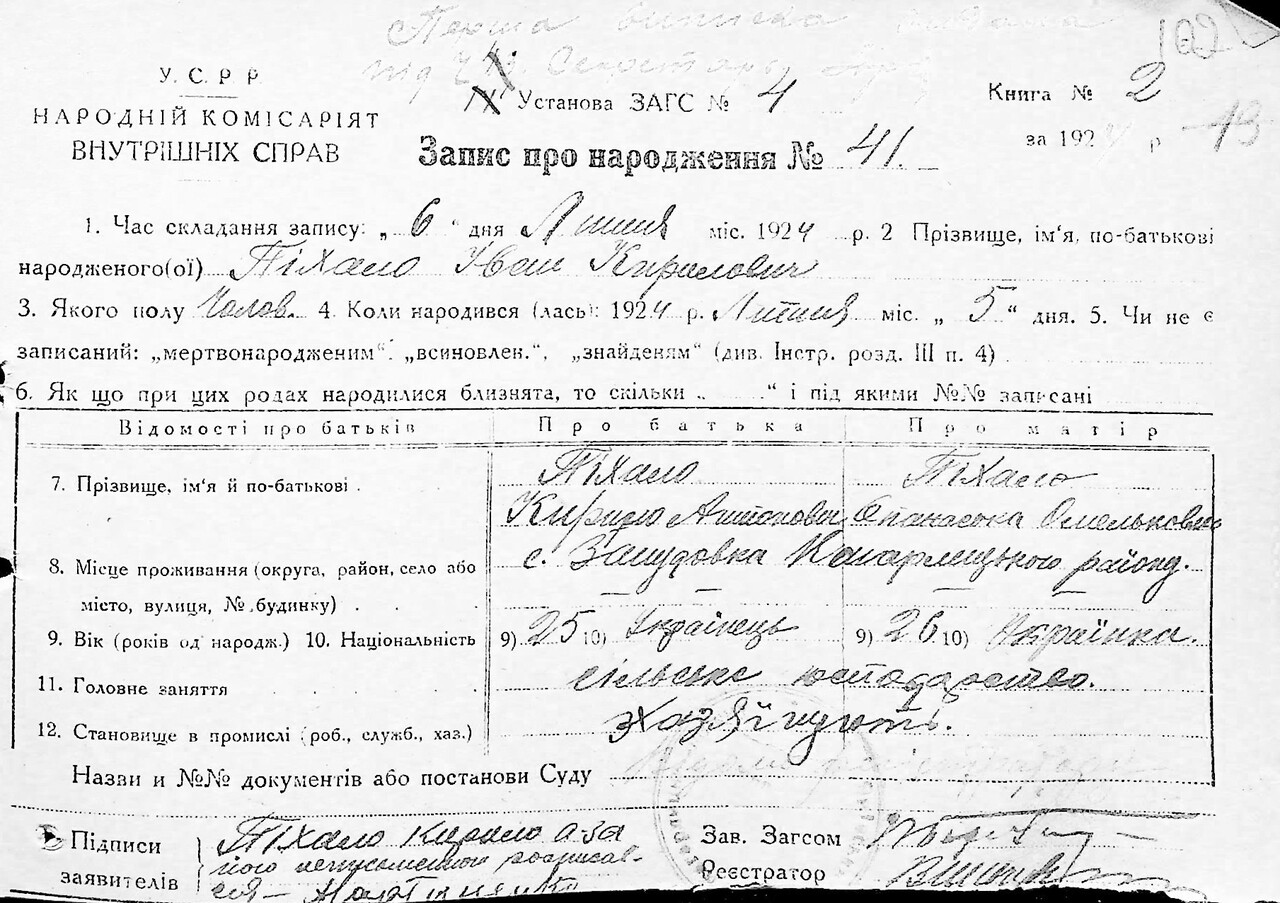 Перша виписка видана
під ч. Секретарь
102
У.С.Р.Р.
НАРОДНІЙ КОМІСАРІЯТ
ВНУТРІШНІХ СПРАВ
Установа ЗАГС № 4
Книга № 2
за 1924 р
13
Запис про народження № 41.
1. Час складання запису: „ 6 “ дня Липня міс. 1924 р. 2 Прізвище, ім‘я, по-батькові
народженого(ої) Піхало Іван Кирилович
3. Якого полу Чолов. 4. Коли народився (лась): 1924 р. Липня міс. „ 5 “ дня. 5. Чи не є
записаний: „мертвонародженим“. „всиновлен.“, „знайденям“ (див. Інстр. розд. III п. 4)
6. Як що при цих родах народилися близнята, то скільки „ “ і під якими №№ записані
Відомості про батьків Про батька Про матір
7. Прізвище, ім‘я й по-батькові . Піхало Піхало
Кирило Антонович Опанаска Омельковна
8. Місце проживання (округа, район, село або с. Кагарлицького району.
місто, вулиця, № будинку) . .
9. Вік (років од народж.) 10. Національність 9) 25 10) Українець 9) 26 10) Українка.
11. Головне заняття . . . . сільське господарство.
12. Становище в промислі (роб., служб., хаз.) хазяїнують.
Назви и №№ документів або постанови Суду
Підписи
заявителів
Піхало Кирило а за
його неписьменного розписав-
ся – Мартиненко
Зав. Загсом
Реєстратор